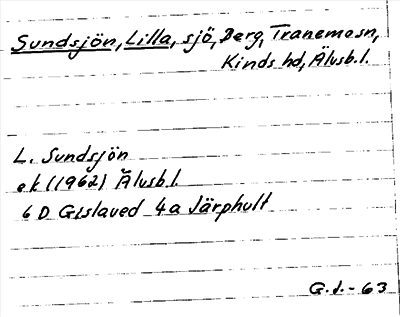 Sundsjön, Lilla, sjö, Berg, Tranemo sn,
Kinds hd, Älvsb.l.
L. Sundsjön
ek (1962) Älvsb.l.
6 D Gislaved 4a Järphult
G.J. - 63